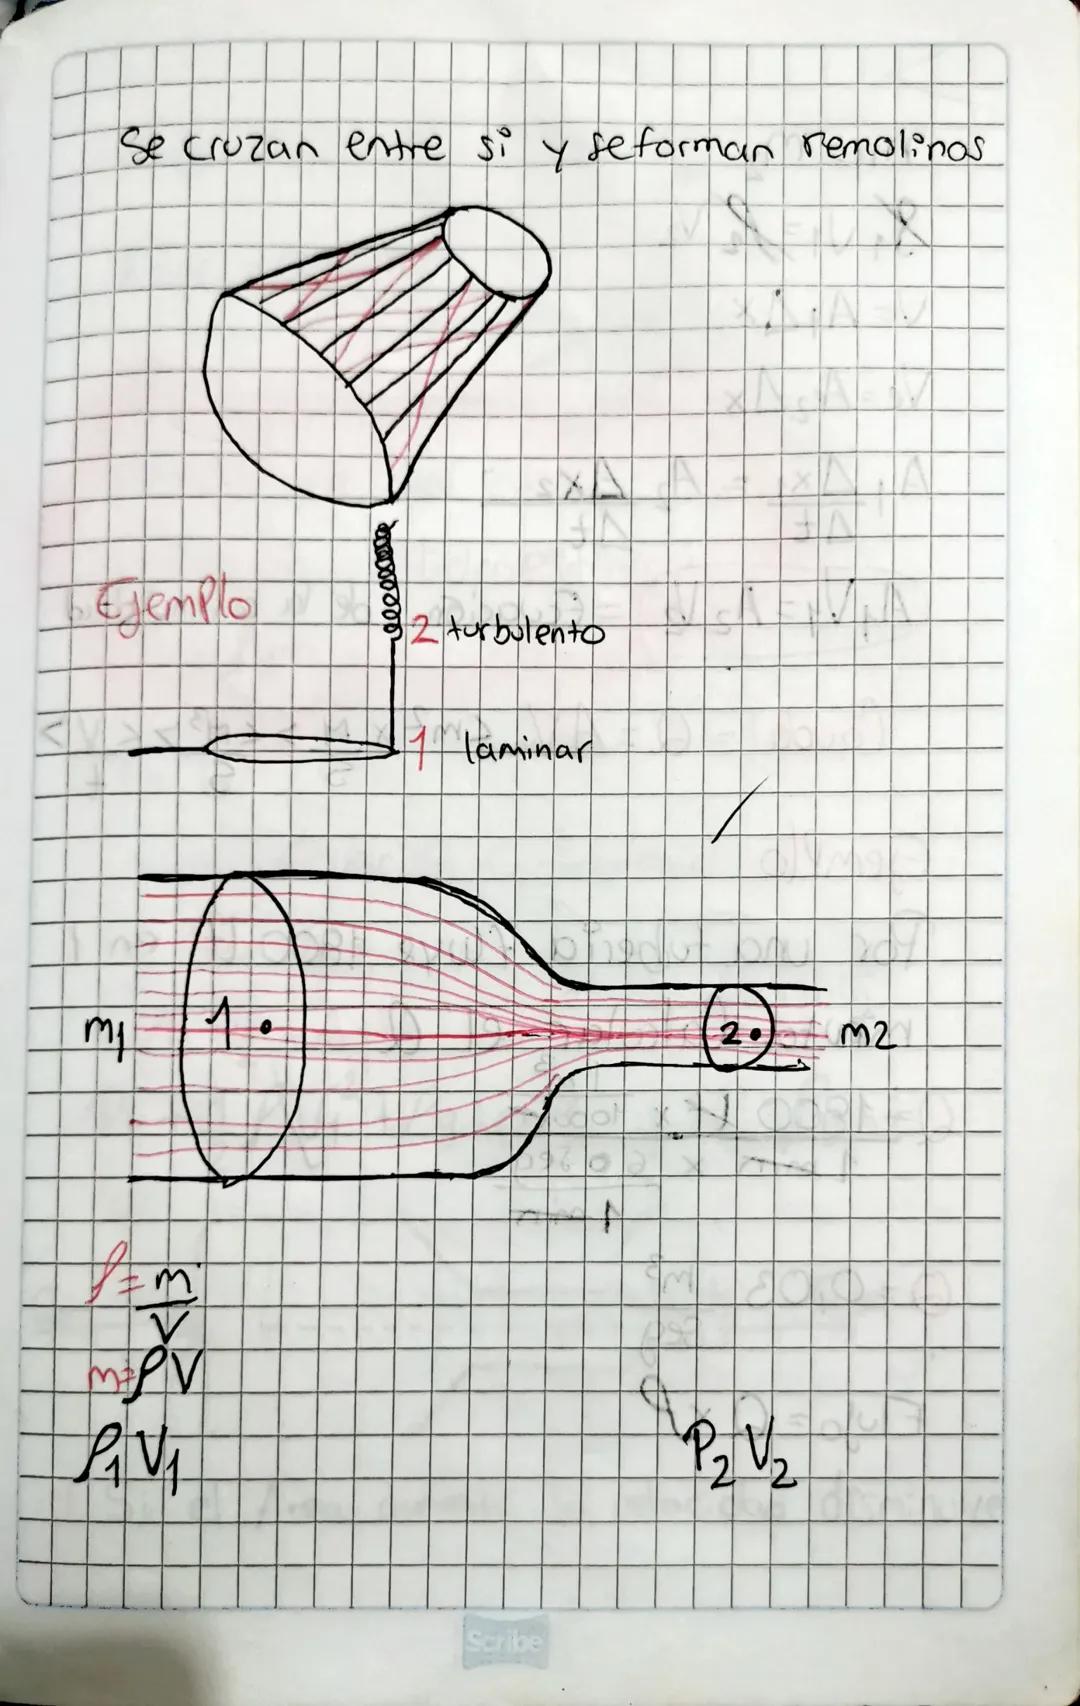 Se cruzan entre si y se forman remolinos
Ejemplo
2 turbulento
1 laminar
m1 1 2 m2
ρ = m
V
m = ρV
ρ1 V1 P2 V2
Scribe